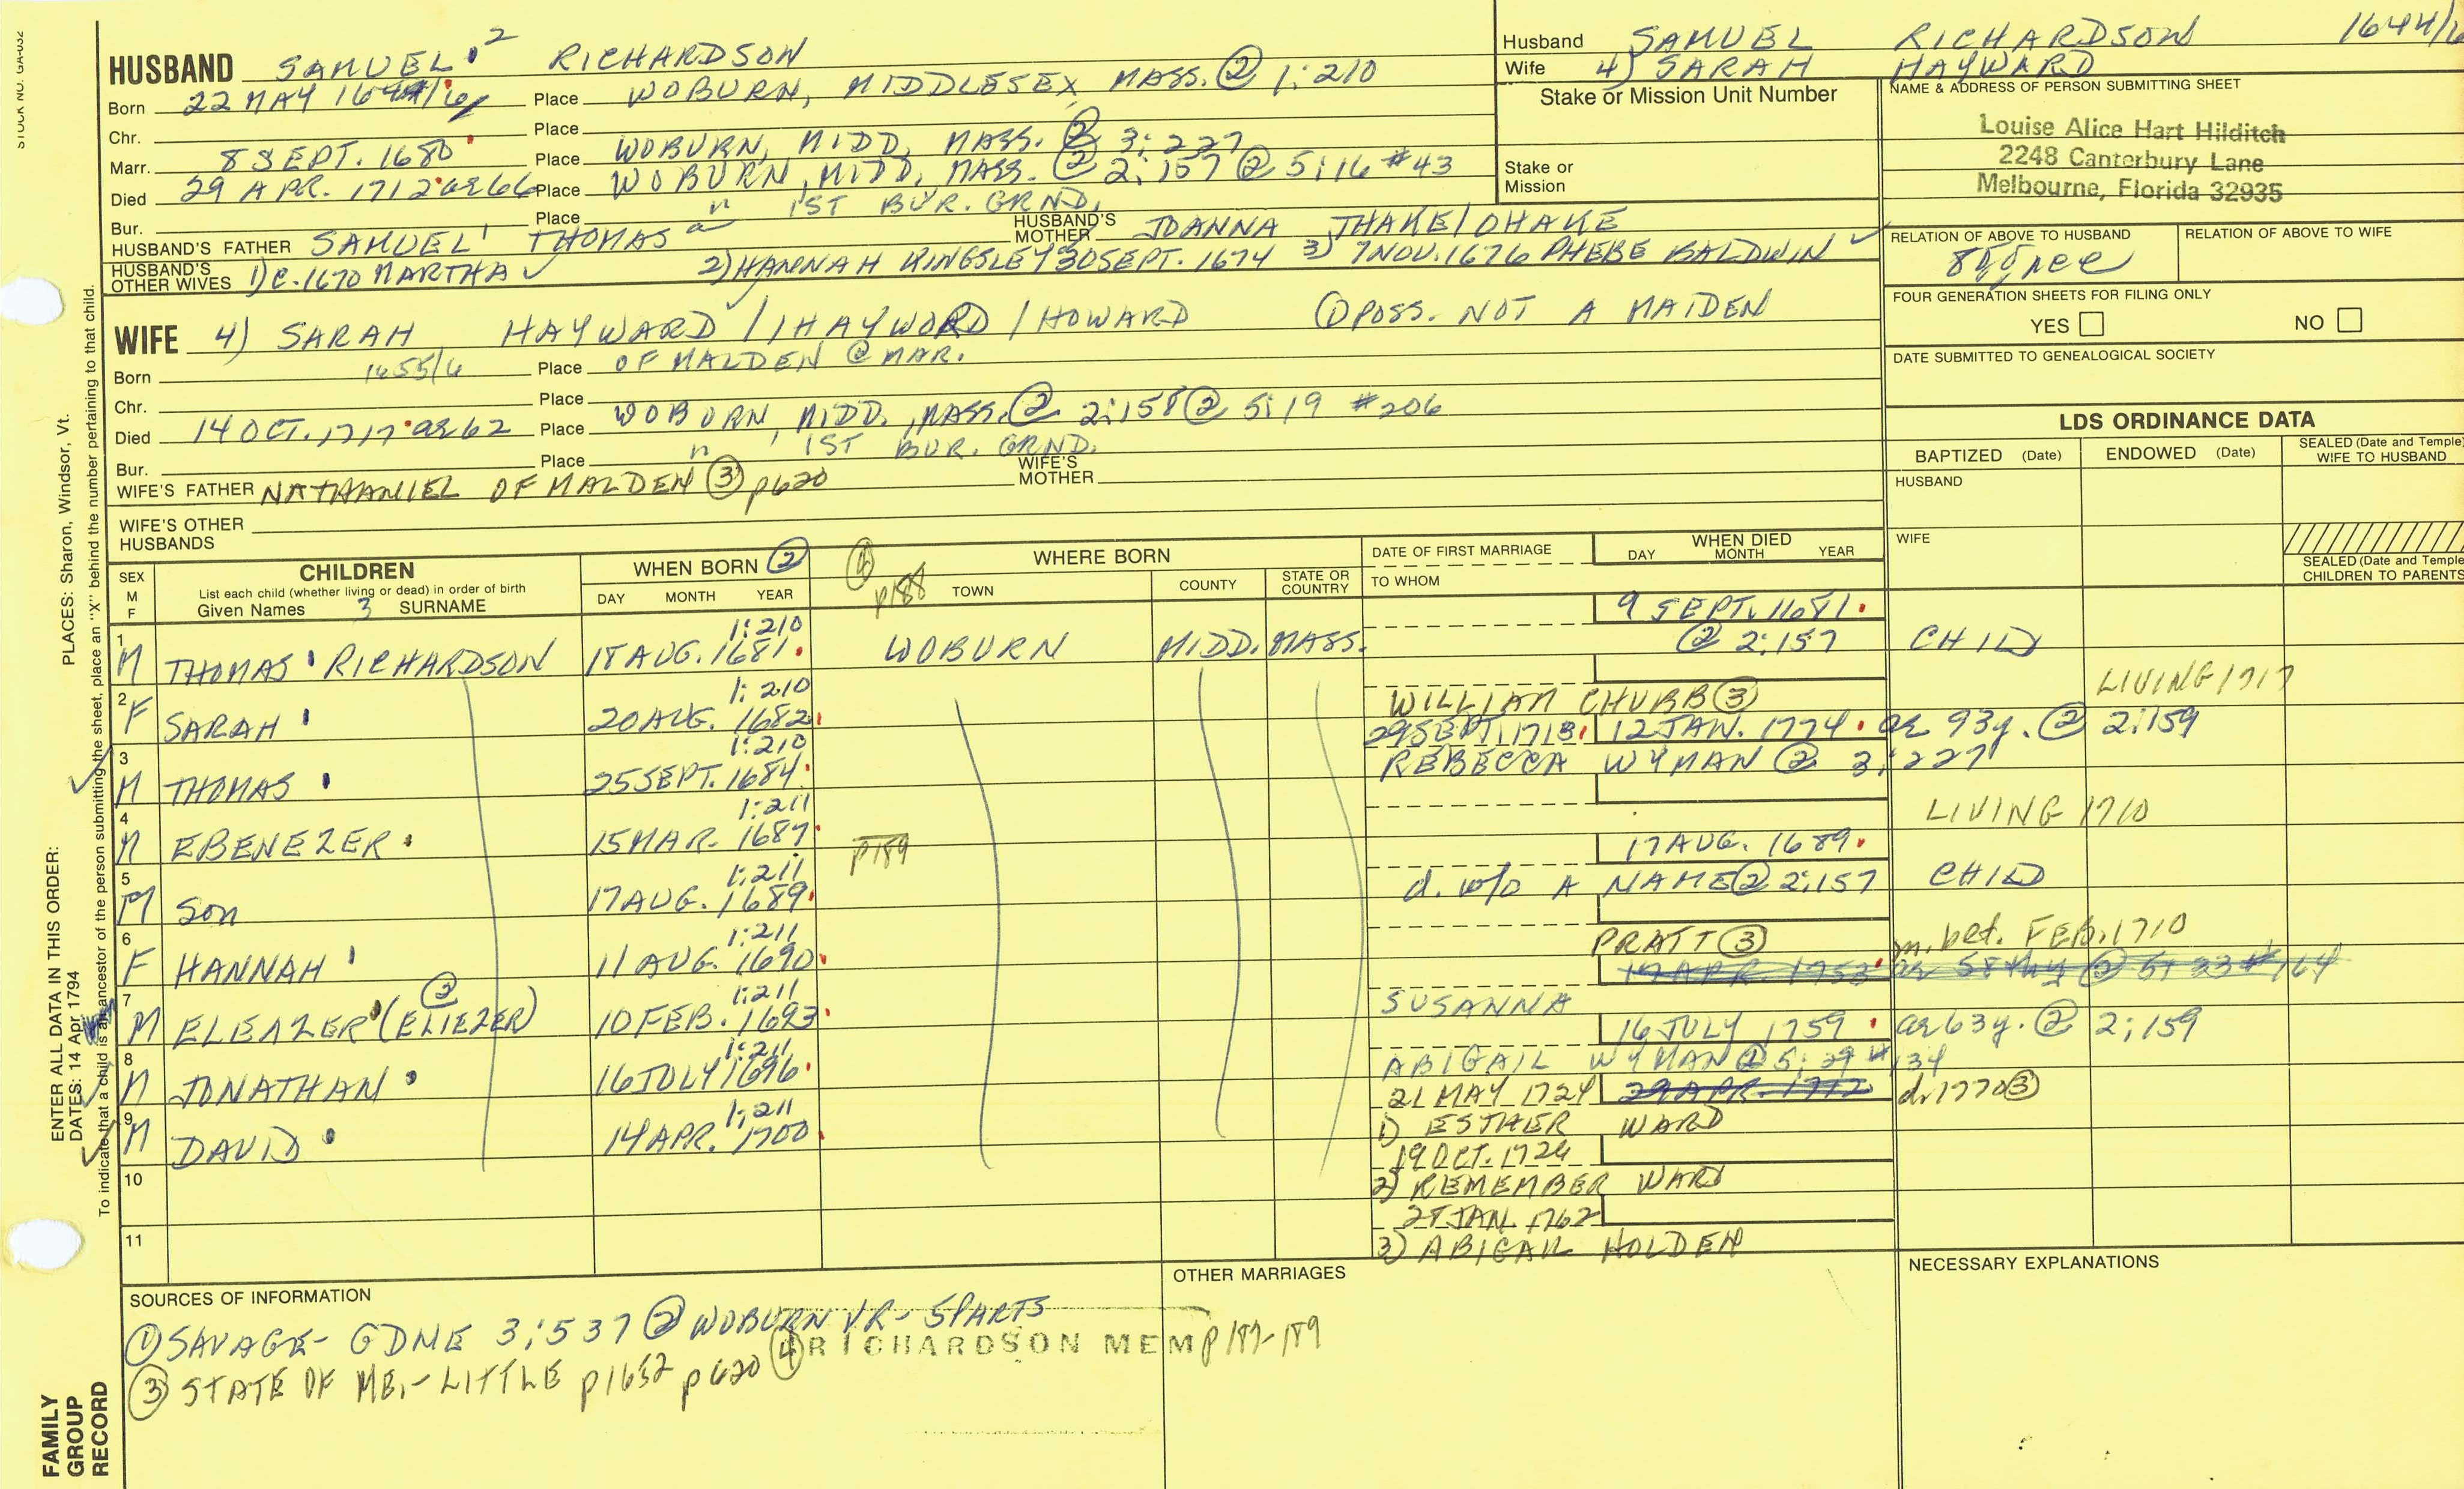 STOCK NO. GA-032
HUSBAND SAMUEL 2 RICHARDSON
Born 22 MAY 1644/6 Place WOBURN, MIDDLESEX MASS. ② 1:210
Chr. Place
Marr. 8 SEPT. 1680 Place WOBURN, MIDD, MASS. ② 3:227
Died 29 APR. 1712 ae 66 Place WOBURN, MIDD, MASS. ② 2:157 ② 5:16 #43
Bur. Place " 1ST BUR. GRND,
HUSBAND'S FATHER SAMUEL 1 THOMAS HUSBAND'S MOTHER JOANNA THAKE/DHAKE
HUSBAND'S OTHER WIVES 1) C. 1670 MARTHA ✓ 2) HANNAH KINGSLEY 30 SEPT. 1674 3) 7 NOV. 1676 PHEBE BALDWIN ✓
WIFE 4) SARAH HAYWARD / HAYWORD / HOWARD ① POSS. NOT A MAIDEN
Born 1655/6 Place OF MALDEN @ MAR.
Chr. Place
Died 14 OCT. 1717 ae 62 Place WOBURN, MIDD., MASS. ② 2:158 ② 5:19 #206
Bur. Place " 1ST BUR. GRND.
WIFE'S FATHER NATHANIEL OF MALDEN ③ p620 WIFE'S MOTHER
WIFE'S OTHER HUSBANDS
Husband SAMUEL RICHARDSON 1644/
Wife 4) SARAH HAYWARD
Stake or Mission Unit Number
Stake or Mission
NAME & ADDRESS OF PERSON SUBMITTING SHEET
Louise Alice Hart Hilditch
2248 Canterbury Lane
Melbourne, Florida 32935
RELATION OF ABOVE TO HUSBAND RELATION OF ABOVE TO WIFE
FOUR GENERATION SHEETS FOR FILING ONLY
YES NO
DATE SUBMITTED TO GENEALOGICAL SOCIETY
LDS ORDINANCE DATA
BAPTIZED (Date) ENDOWED (Date) SEALED (Date and Temple) WIFE TO HUSBAND
HUSBAND
WIFE
SEALED (Date and Temple) CHILDREN TO PARENTS
SEX M F CHILDREN List each child (whether living or dead) in order of birth Given Names 3 SURNAME
WHEN BORN ② DAY MONTH YEAR
④ p188 WHERE BORN TOWN COUNTY STATE OR COUNTRY
DATE OF FIRST MARRIAGE TO WHOM
WHEN DIED DAY MONTH YEAR
1 M THOMAS RICHARDSON 18 AUG. 1681 1:210 WOBURN MIDD. MASS. 9 SEPT. 1681 ② 2:157 CHILD
2 F SARAH 20 AUG. 1682 1:210 WILLIAM CHUBB ③ LIVING 1717
3 M THOMAS 25 SEPT. 1684 1:210 29 SEPT. 1713 REBECCA WYMAN ② 3:227 12 JAN. 1774 ae 93y. ② 2:159
4 M EBENEZER 15 MAR. 1687 1:211 p189 LIVING 1710
5 M Son 17 AUG. 1689 1:211 17 AUG. 1689 d. w/o A NAME ② 2:157 CHILD
6 F HANNAH 11 AUG. 1690 1:211 PRATT ③ m. bet. FEB. 1710
7 M ELEAZER (ELIEZER) ② 10 FEB. 1693 1:211 SUSANNA 17 APR. 1753 ae 58 ② 5:23 #164
8 M JONATHAN 16 JULY 1696 1:211 ABIGAIL WYMAN ② 5:29 #134 16 JULY 1759 ae 63y. ② 2:159
9 M DAVID 14 APR. 1700 1:211 21 MAY 1724 29 APR. 1712 d. 1770 ③
1) ESTHER WARD
10 19 OCT. 1726
2) REMEMBER WARD
11 28 JAN. 1762
3) ABIGAIL HOLDEN
SOURCES OF INFORMATION
① SAVAGE - GDNE 3:537 ② WOBURN VR - 5 PARTS
③ STATE OF ME. - LITTLE p1632 p620 ④ RICHARDSON MEM p187-189
OTHER MARRIAGES
NECESSARY EXPLANATIONS
PLACES: Sharon, Windsor, Vt.
ENTER ALL DATA IN THIS ORDER:
DATES: 14 Apr 1794
To indicate that a child is an ancestor of the person submitting the sheet, place an "X" behind the number pertaining to that child.
FAMILY
GROUP
RECORD